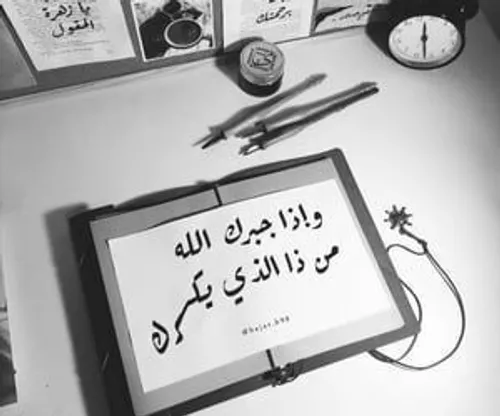 يا زهرة
الحقول
برحمتك
وإذا جبرك الله
من ذا الذي يكسرك
@hajar.b98